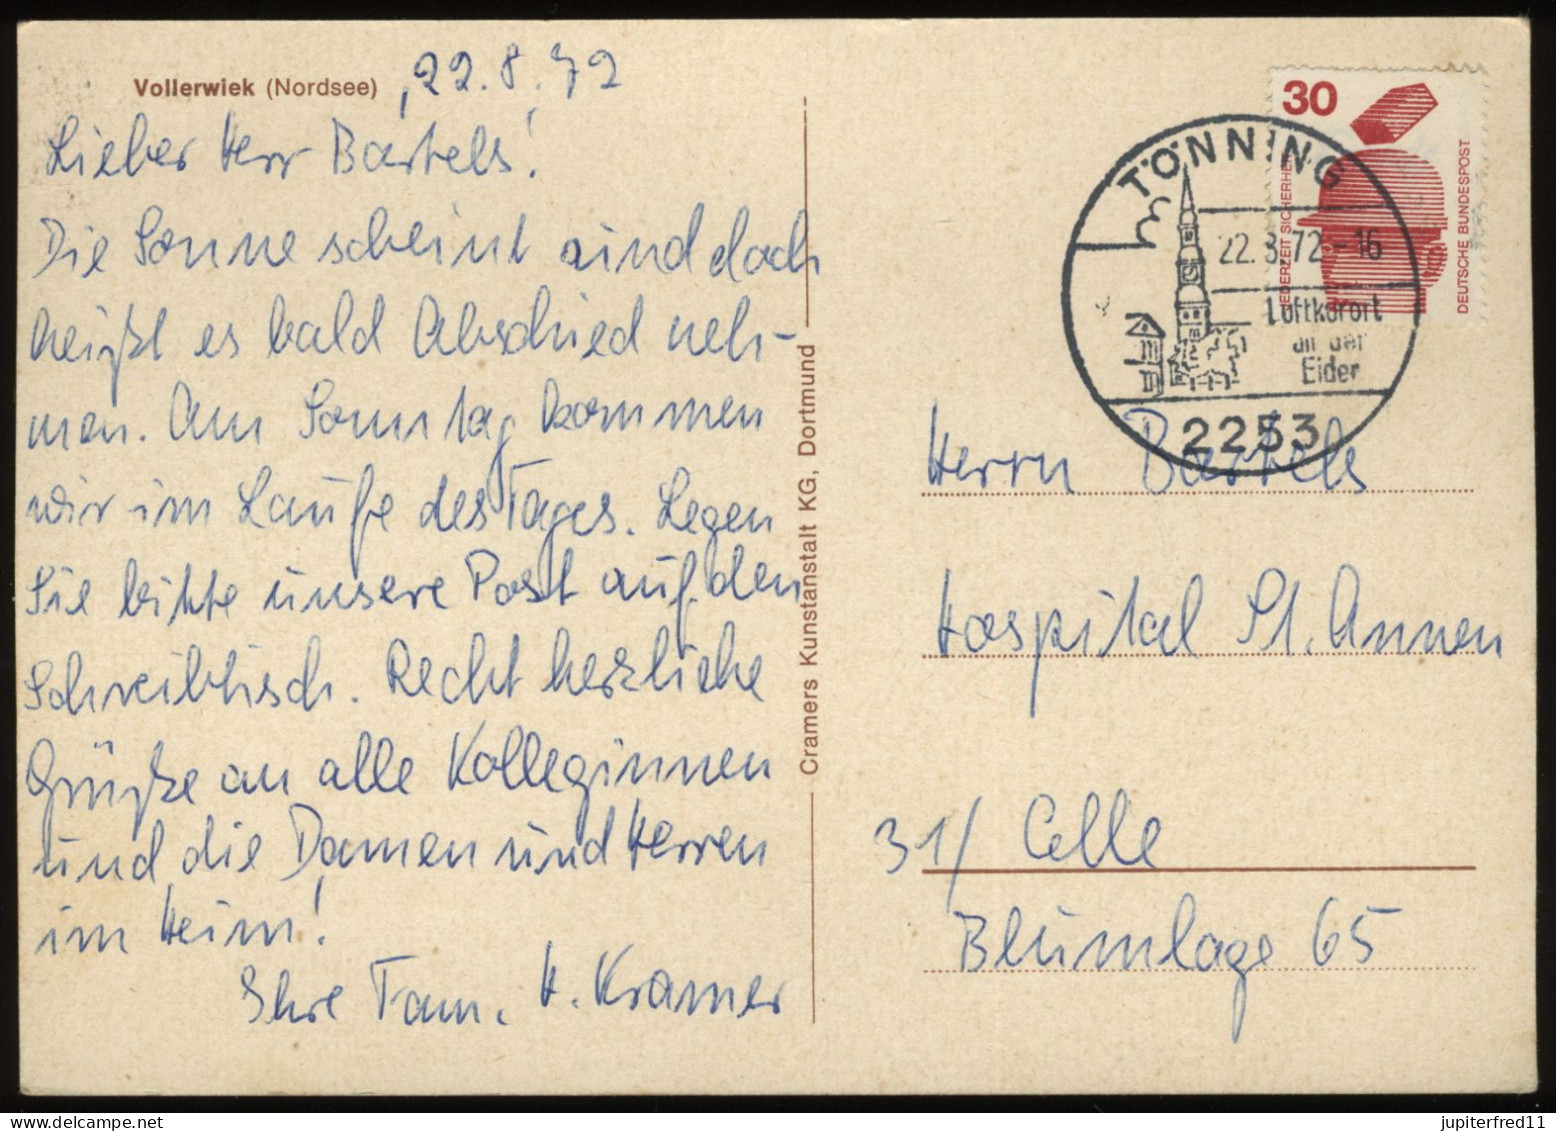 Vollerwiek (Nordsee) , 22.8.72
Lieber Herr Bartels!
Die Sonne scheint und doch
heißt es bald Abschied neh-
men. Am Sonntag kommen
wir im Laufe des Tages. Legen
Sie bitte unsere Post auf den
Schreibtisch. Recht herzliche
Grüße an alle Kolleginnen
und die Damen und Herren
im Heim!
Ihre Fam. H. Kramer
Cramers Kunstanstalt KG, Dortmund
30
JEDERZEIT SICHERHEIT
DEUTSCHE BUNDESPOST
TÖNNING
22.8.72-16
Luftkurort
an der
Eider
2253
Herrn Bartels
Hospital St. Annen
31/ Celle
Blumlage 65
jupiterfred11